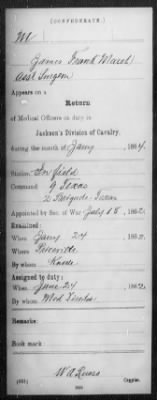 (CONFEDERATE.)
M
James Frank Marsh
Asst Surgeon
Appears on a
Return
of Medical Officers on duty in
Jackson's Division of Cavalry,
during the month of Jany, 1864.
Station: In field
Command: 9 Texas
2 Brigade Texas
Appointed by Sec. of War July 18, 1862.
Examined:
When Jany 24, 186
Where
By whom
Assigned to duty:
When June 24, 1862.
By whom Med
Remarks:
Book mark:
W A
Copyist.